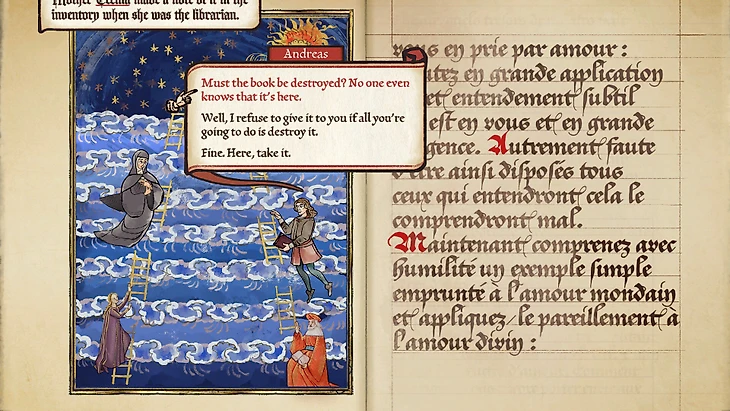 Mother Cecilia made a note of it in the
inventory when she was the librarian.
Andreas
Must the book be destroyed? No one even
knows that it's here.
Well, I refuse to give it to you if all you're
going to do is destroy it.
Fine. Here, take it.
en prie par amour :
en grande application
et entendement subtil
est en vous et en grande
Autrement faute
d'être ainsi disposés tous
ceux qui entendront cela le
comprendront mal.
Maintenant comprenez avec
humilité un exemple simple
emprunté à l'amour mondain
et appliquez-le pareillement à
l'amour divin :